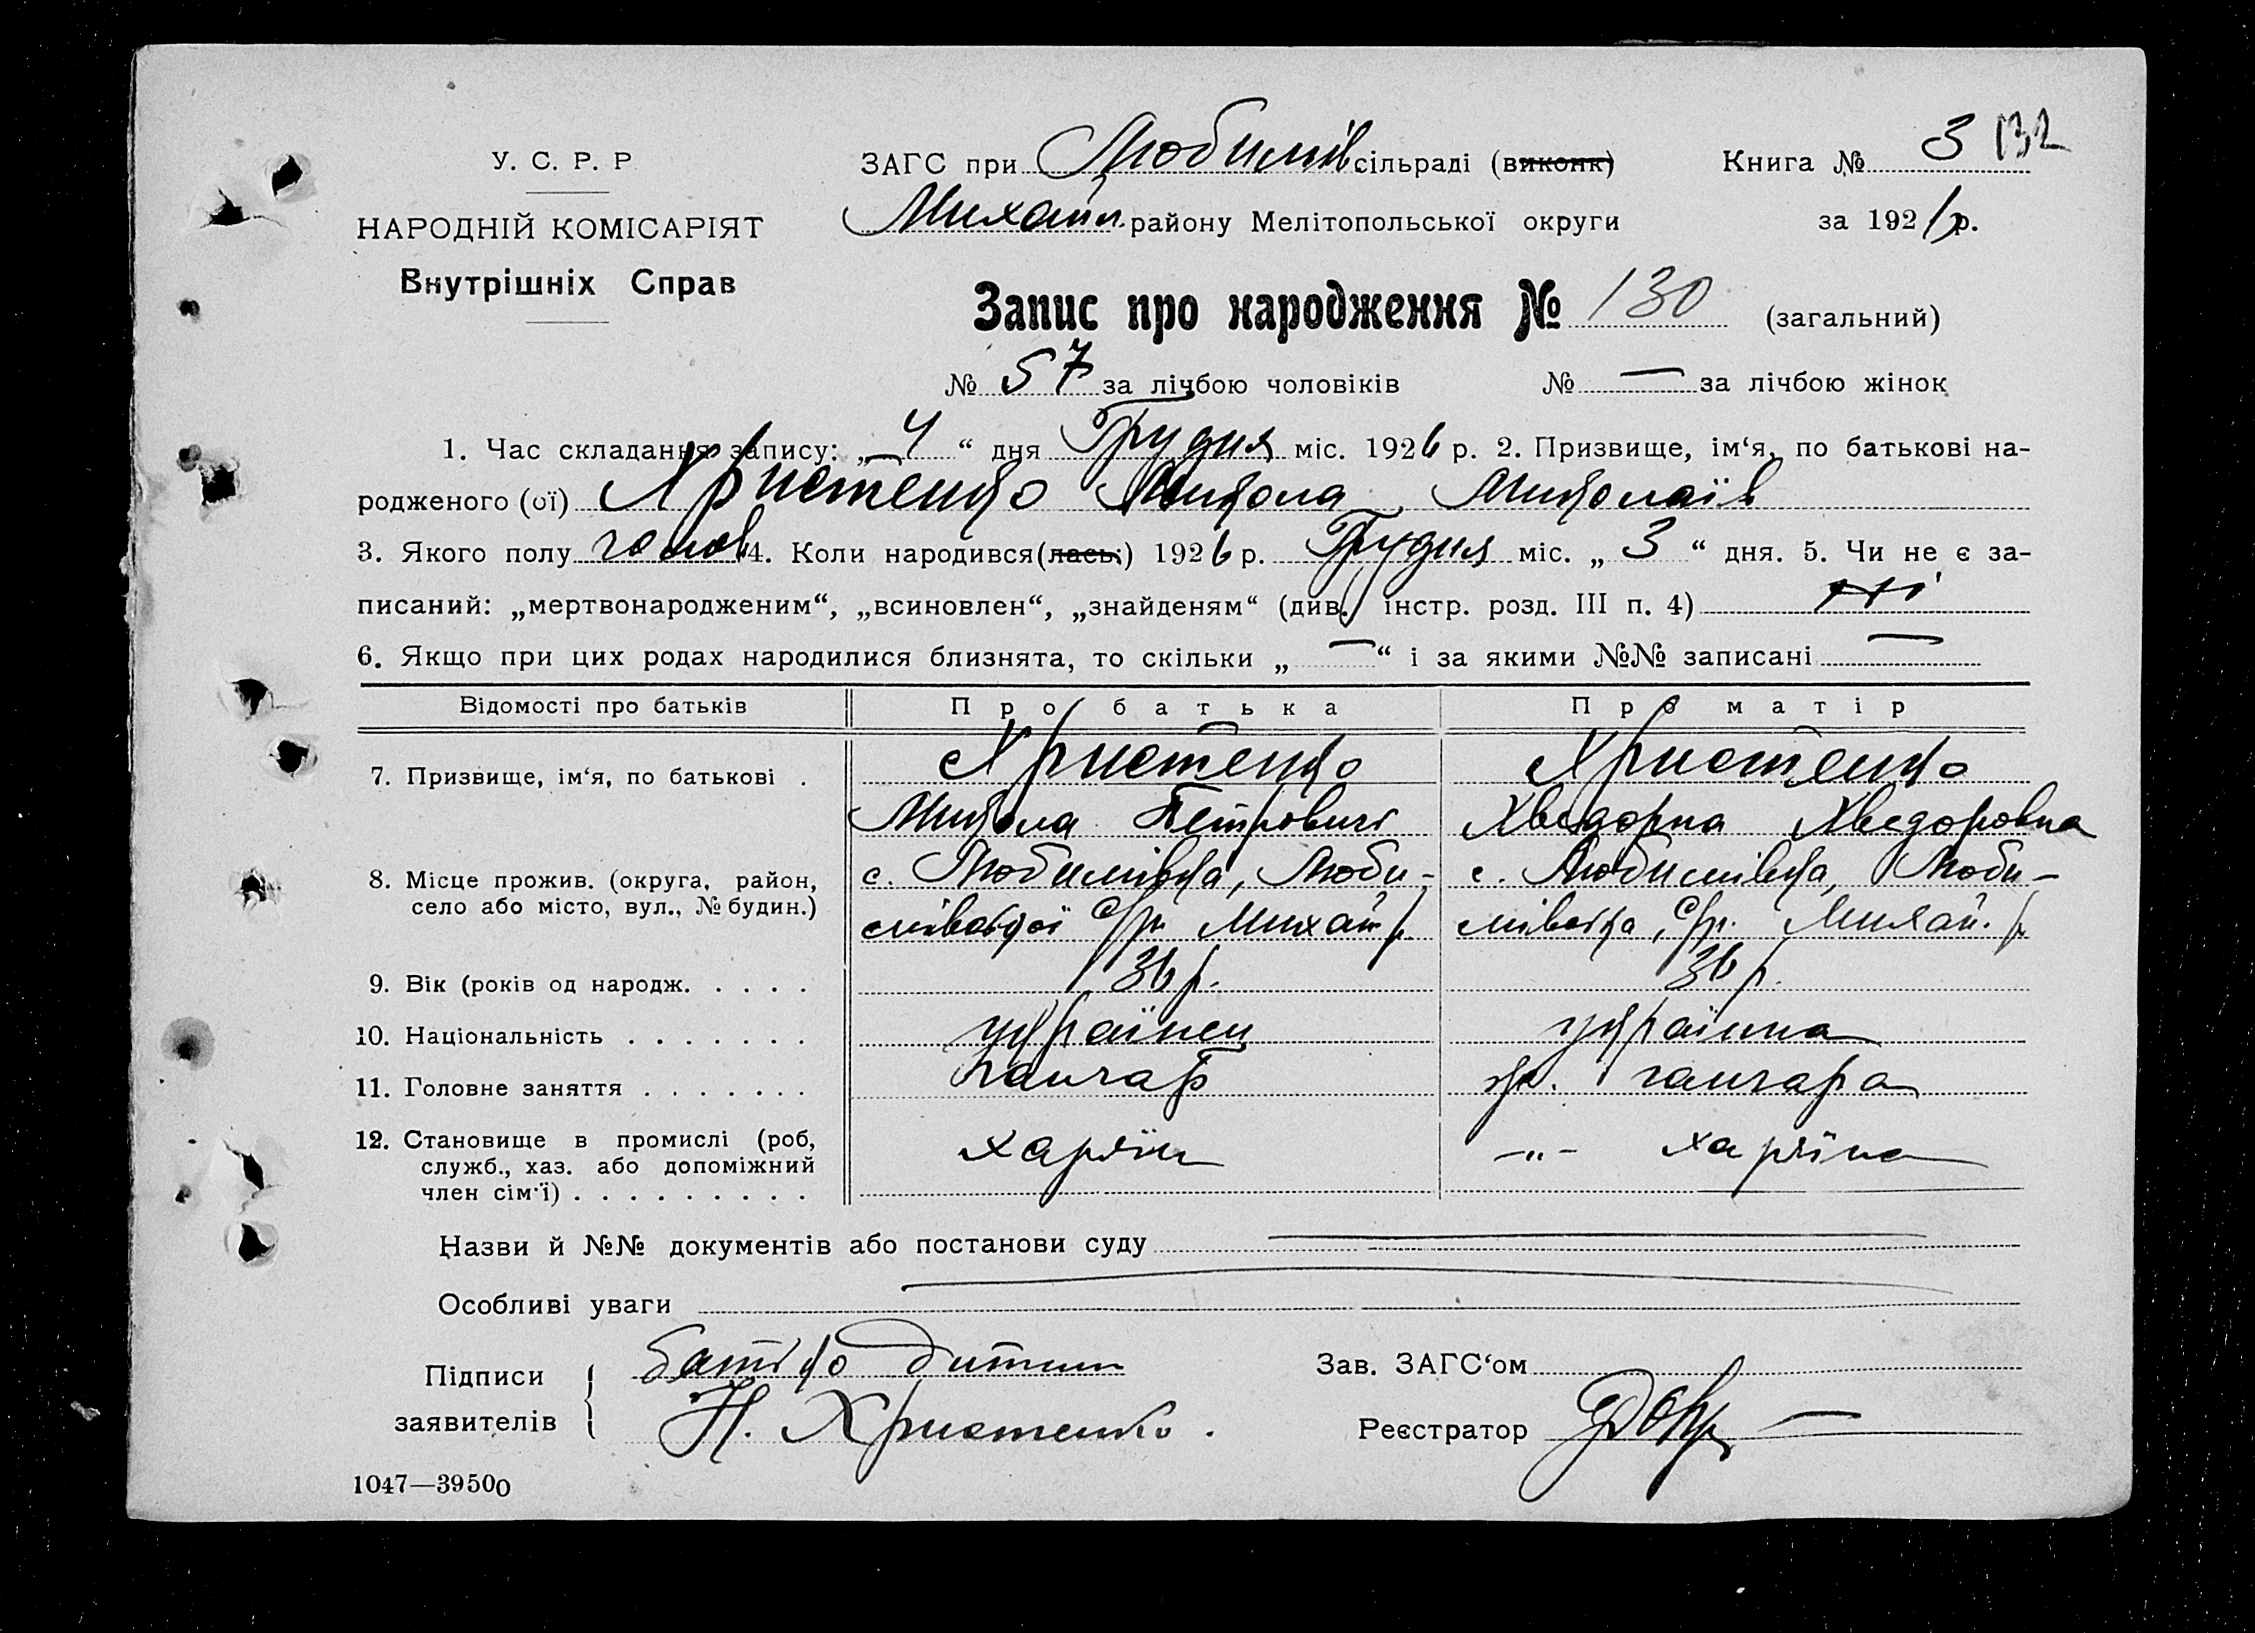 У. С. Р. Р
НАРОДНІЙ КОМІСАРІЯТ
Внутрішніх Справ
ЗАГС при Любимів сільраді (виконк)
Михайл. району Мелітопольської округи
Книга № 3 132
за 192 р.
Запис про народження № 130 (загальний)
№ 57 за лічбою чоловіків № — за лічбою жінок
1. Час складання запису: „ 4 “ дня Грудня міс. 1926 р. 2. Призвище, ім‘я, по батькові на-
родженого (ої) Христенко Микола Миколаїв
3. Якого полу чолов 4. Коли народився(лась:) 1926 р. Грудня міс. „ 3 “ дня. 5. Чи не є за-
писаний: „мертвонародженим“, „всиновлен“, „знайденям“ (див. інстр. розд. III п. 4) ні
6. Якщо при цих родах народилися близнята, то скільки „ — “ і за якими №№ записані —
Відомості про батьків Про батька Про матір
7. Призвище, ім‘я, по батькові . Христенко Христенко
Микола Петрович Хведорна Хведоровна
8. Місце прожив. (округа, район, с. Любимівка, Люби- с. Любимівка, Люби-
село або місто, вул., № будин.) мівської с/р Михай р. мівська, с/р. Михай. р
9. Вік (років од народж. . . . . 36 р. 36 р.
10. Національність . . . . . . . українец українка
11. Головне заняття . . . . . . . ганчар ганчара
12. Становище в промислі (роб, хазяїн -„- хазяїна
служб., хаз. або допоміжний
член сім‘ї) . . . . . . . . .
Назви й №№ документів або постанови суду
Особливі уваги
Підписи заявителів { батько дитини
Н. Христенко.
Зав. ЗАГС‘ом
Реєстратор
1047—39500